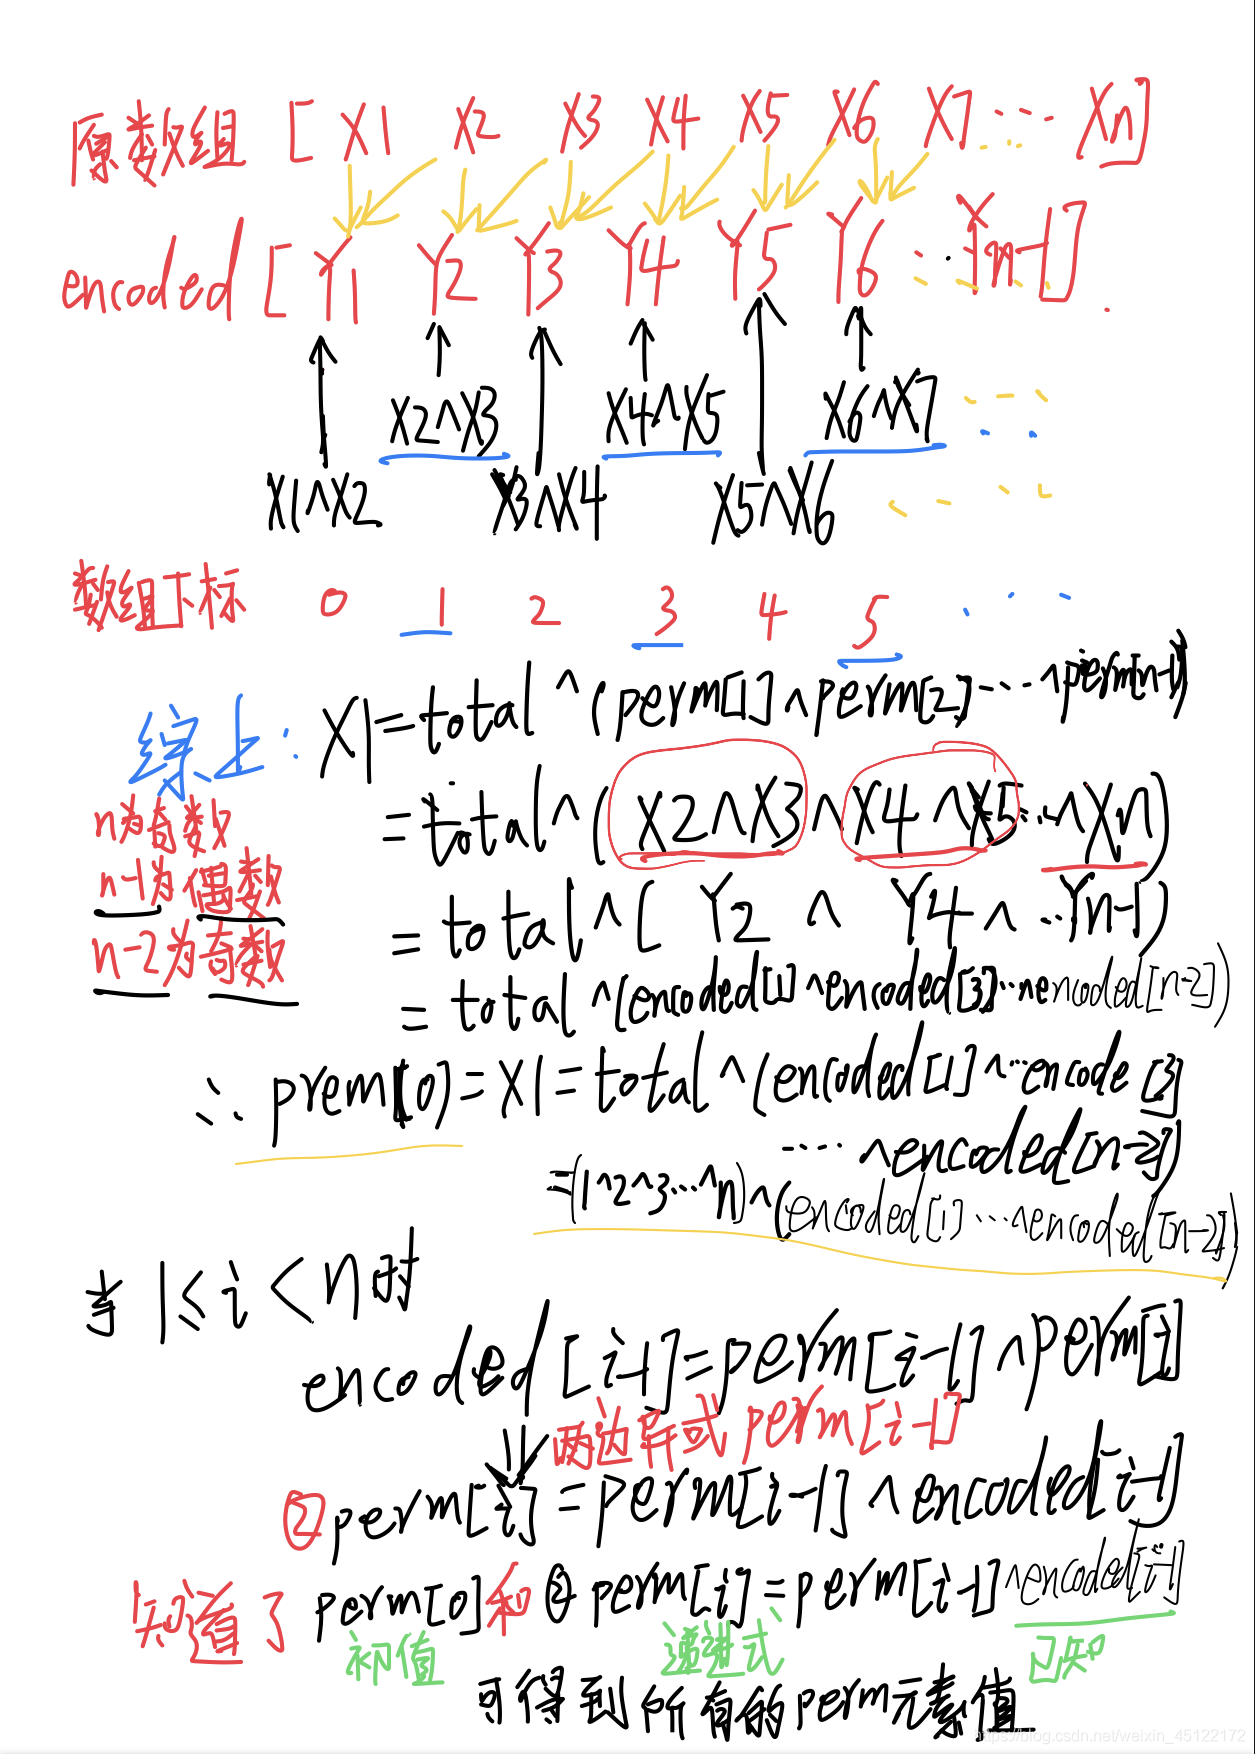 原数组 [ X1 X2 X3 X4 X5 X6 X7 ... Xn]
encoded [ Y1 Y2 Y3 Y4 Y5 Y6 ... Yn-1]
X2^X3 X4^X5 X6^X7 ...
X1^X2 X3^X4 X5^X6 ...
数组下标 0 1 2 3 4 5 ...
综上: X1=total^(perm[1]^perm[2]...^perm[n-1])
=total^(X2^X3^X4^X5...^Xn)
n为奇数
n-1为偶数
n-2为奇数
=total^(Y2^Y4^...Yn-1)
=total^(encoded[1]^encoded[3]...^encoded[n-2])
∴prem[0)=X1=total^(encoded[1]^...encode[3]
...^encoded[n-2])
=(1^2^3...^n)^(encoded[1]...^encoded[n-2])
当1≤i<n时
encoded[i-1]=perm[i-1]^perm[i]
两边异或perm[i-1]
②perm[i]=perm[i-1]^encoded[i-1]
知道了perm[0]和②perm[i]=perm[i-1]^encoded[i-1]
初值 递进式 已知
可得到所有的perm元素值
https://blog.csdn.net/weixin_45122172